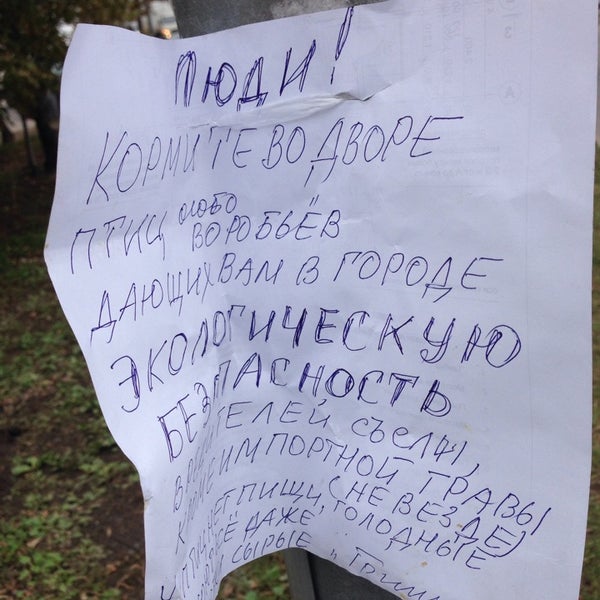 ЛЮДИ!
КОРМИТЕ ВО ДВОРЕ
ПТИЦ ОСОБО ВОРОБЬЁВ
ДАЮЩИХ ВАМ В ГОРОДЕ
ЭКОЛОГИЧЕСКУЮ
БЕЗПАСНОСТЬ
СЪЕЛИ,
ИМПОРТНОЙ ТРАВЫ
НЕТ ПИЩИ, (НЕ ВЕЗДЕ)
ВСЁ ДАЖЕ ГОЛОДНЫЕ
СЫРЫЕ